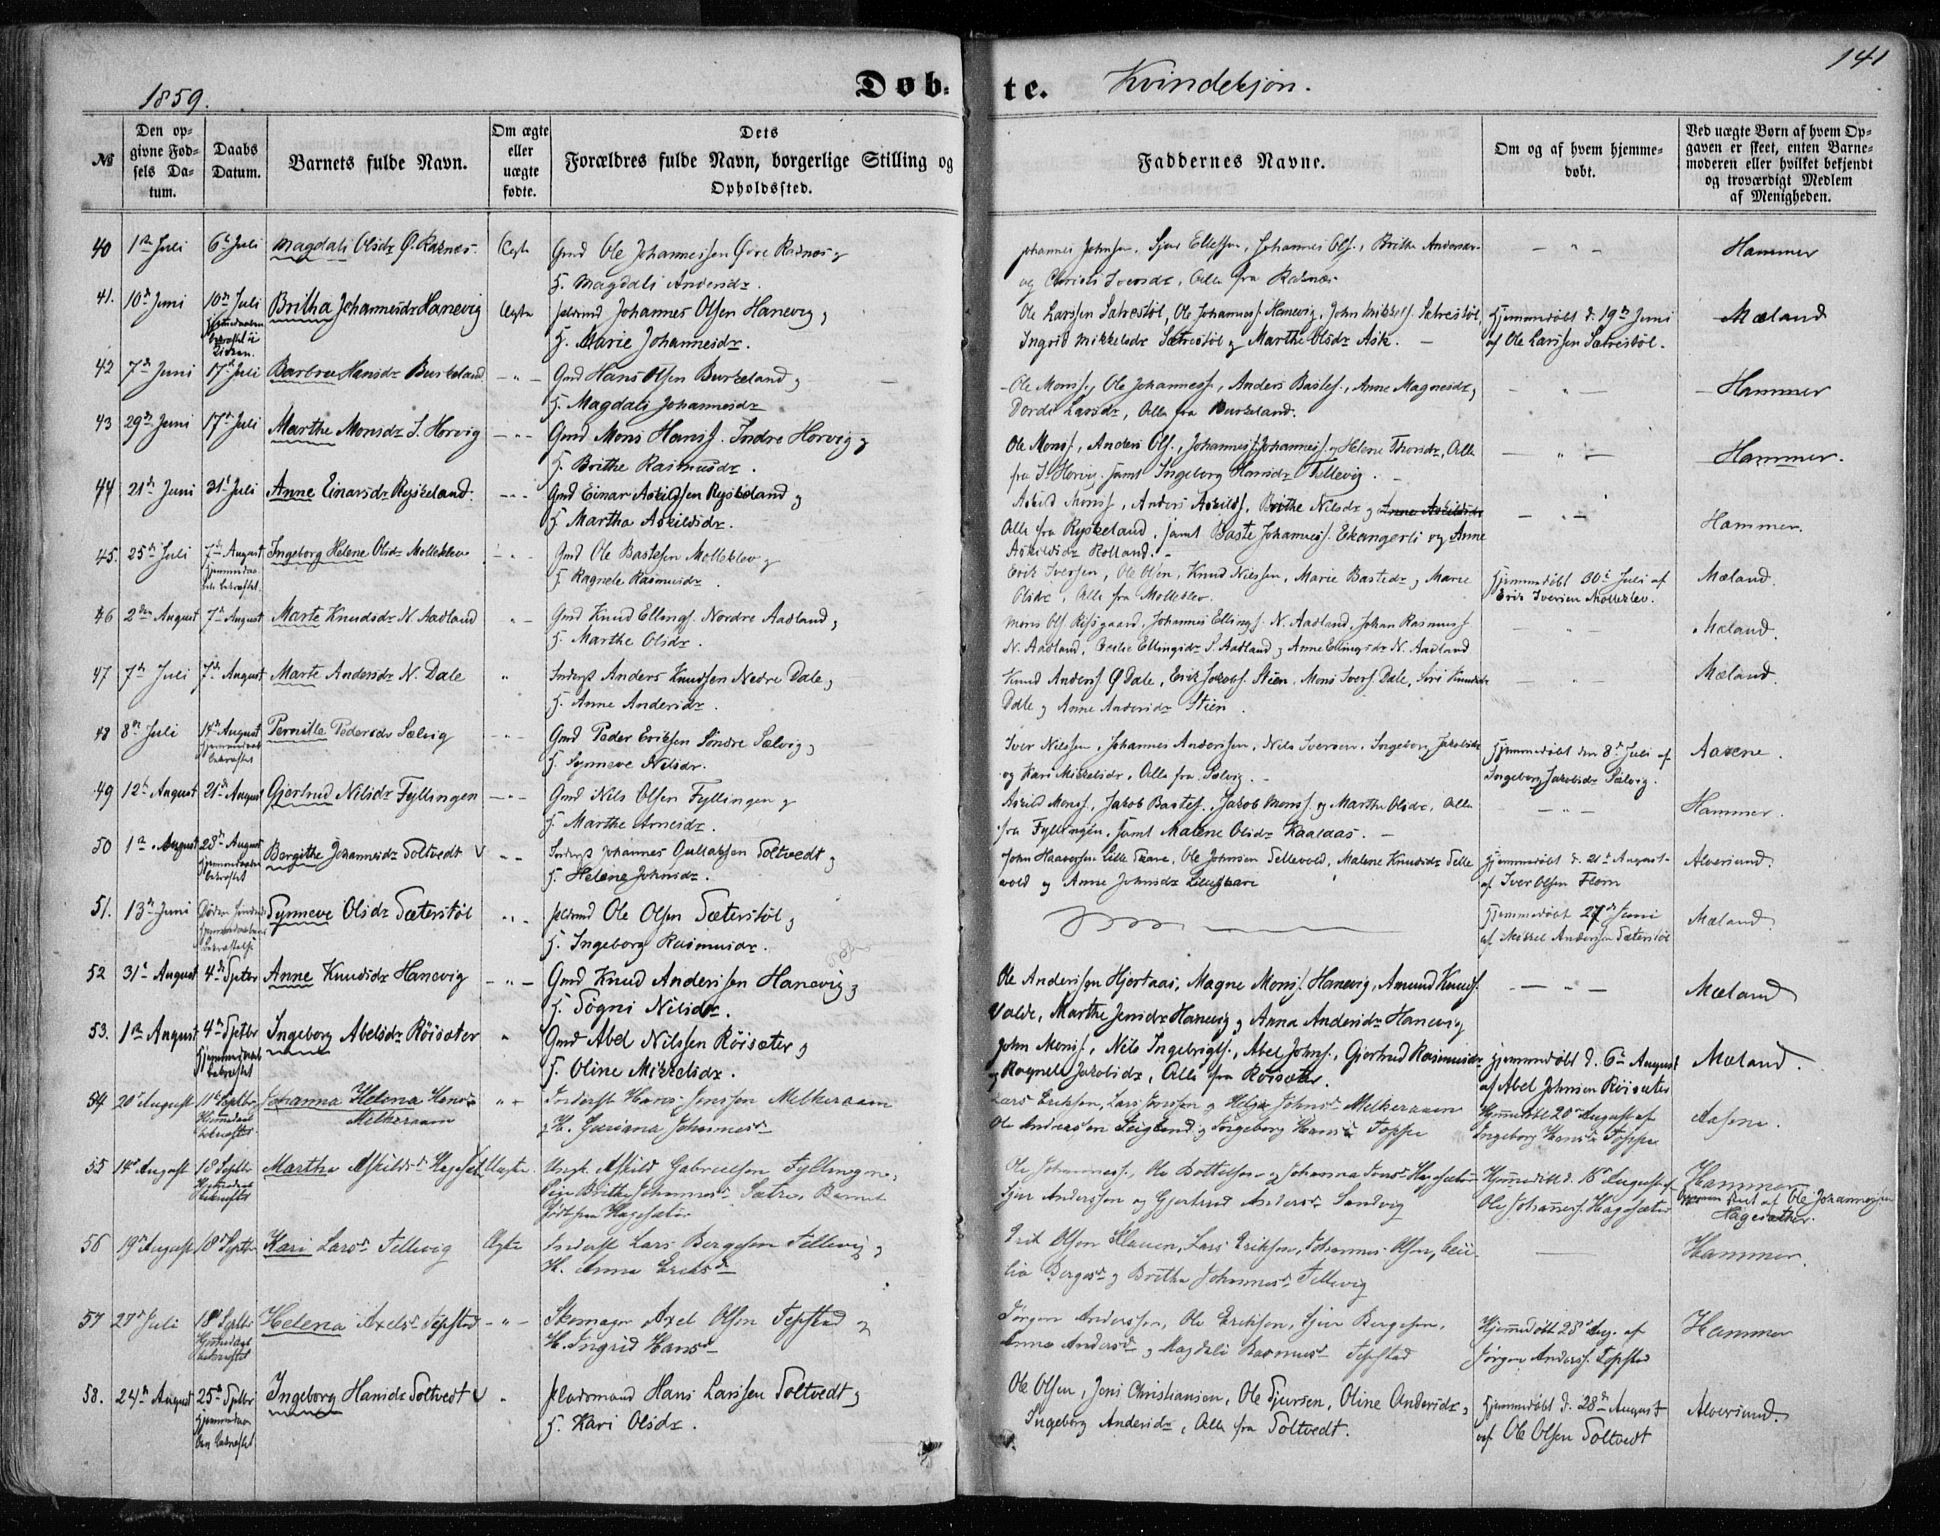 141
1859.
Døb- te. Kvindekjøn.
№
Den op-
givne Fød-
sels Da-
tum.
Daabs
Datum.
Barnets fulde Navn.
Om ægte
eller
uægte
fødte.
Dets
Forældres fulde Navn, borgerlige Stilling og
Opholdssted.
Faddernes Navne.
Om og af hvem hjemme-
døbt.
Ved uægte Børn af hvem Op-
gaven er skeet, enten Barne-
moderen eller hvilket bekjendt
og troværdigt Medlem
af Menigheden.
40 1ste Juli 6te Juli Magdali Olsdr Ø. Raknes Ægte Gmd Ole Johannessen Øvre Raknes og
H. Magdali Andersdr.
Johannes Johnsen, Sjur Ellefsen, Johannes Ols., Brithe Andersdr
og Christi Iversdr, Alle fra Raknes
Hammer
41. 10de Juni 10de Juli Britha Johannesdr Hanevig Ægte Johannes Olsen Hanevig,
H. Marie Johannesdr.
Ole Larssen Sætrestøl, Ole Johannes. Hanevig, John Mikkels. Sætrestøl,
Ingrid Mikkelsdr Sætrestøl og Marthe Olsdr Ask. —
Hjemmedøbt d. 19de Juni
af Ole Larssen Sætrestøl.
Mæland
42 7de Juni 17de Juli Barbra Hansdr Burkeland — " — Gmd Hans Olsen Burkeland,
H. Magdali Johannesdr
Ole Monss., Ole Johanness., Anders Bastes., Anne Magnesdr,
Dorde Larsdr, Alle fra Burkeland.
Hammer
43 29de Juni 17de Juli Marthe Monsdr I. Horvig — " — Gmd Mons Hanss. Indre Horvig og
H. Brithe Rasmusdr.
Ole Monss., Anders Ols., Johannes Johannes. og Helene Thorsdr, Alle
fra I. Horvig, samt Ingeborg Hansdr Tellevig.
Hammer.
44 21de Juni 31te Juli Anne Einarsdr Ryskeland — " — Gmd Einar Askildsen Ryskeland og
H. Martha Askildsdr.
Askild Monss., Anders Askilds., Brithe Nilsdr og Anne Askildsdr
Alle fra Ryskeland, samt Baste Johanness. Ekangerli og Anne
Askildsdr Rolland. —
Hammer.
45. 25de Juli 7de August Ingeborg Helene Olsdr Molleklev — " — Gmd Ole Bastesen Molleklev og
H. Ragnele Rasmusdr.
Erik Iversen, Ole Olsen, Knud Nilssen, Marie Bastedr og Marie
Olsdr, Alle fra Molleklev.
Hjemmedøbt 30te Juli af
Erik Iversen Molleklev.
Mæland.
46 2den August 7de August Marte Knudsdr N. Aadland " — Gmd Knud Ellings. Nordre Aadland,
H. Marthe Olsdr.
Mons Ols. , Johannes Ellings. N. Aadland, Johan Rasmuss.
N. Aadland, Ellingsdr S. Aadland og Anne Ellingsdr N. Aadland
Mæland.
47 7de Juli 7de August Marte Andersdr N. Dale " Inderst Anders Knudsen Nedre Dale,
H. Anne Andersdr.
Knud Anderss. Ø Dale, Erik Jakobs. Stien, Mons Ivers. Dale, Siri Knudsdr
Dale og Anne Andersdr Stien.
Mæland.
48 8de Juli 14de August Pernille Pedersdr Sælvig — " — Gmd Peder Eriksen Søndre Sælvig,
H. Synneve Nilsdr.
Iver Nilssen, Johannes Anderssen, Nils Iversen, Ingeborg Jakobsdr
og Kari Mikkelsdr, Alle fra Sælvig. —
Hjemmedøbt den 8de Juli af
Ingeborg Jakobsdr Sælvig.
Aasene.
49 12te August 21de August Gjertrud Nilsdr Fyllingen — " — Gmd Nils Olsen Fyllingen og
H. Marthe Arnesdr.
Askild Monss., Jakob Bastes., Jakob Monss. og Marthe Olsdr, Alle
fra Fyllingen, samt Malene Olsdr Kaalaas. —
Hammer.
50 1ste August 28de August Bergithe Johannesdr Toltvedt V " — Inderst Johannes Gullaksen Toltvedt,
H. Helene Johnsdr.
John Haavorsen Lille Skare, Ole Johnsen Tellevold, Malene Knudsdr Telle
vold og Anne Johnsdr Lilleskare
Hjemmedøbt d. 21de August
af Iver Olsen Flom
Alversund.
51. 13de Juni Synneve Olsdr Sæterstøl " — Ole Olsen Sæterstøl,
H. Ingeborg Rasmusdr.
Hjemmedøbt 27de Juni
af Mikkel Andersen Sæterstøl
Mæland
52 31te August 4de Septbr Anne Knudsdr Hanevig — " — Gmd Knud Anderssen Hanevig,
H. Søgni Nilsdr.
Ole Anderssen Hjortaas, Magne Monss. Hanevig, Amund Knuds.
Valde, Marthe Jensdr Hanevig og Anna Andersdr Hanevig
Mæland
53. 1ste August 4de Septbr Ingeborg Abelsdr Röisæter " Gmd Abel Nilssen Röisæter,
H. Oline Mikkelsdr.
John Monss., Nils Ingebrigts., Abel Johns., Gjertrud Rasmusdr
og Ragnele Jakobsdr, Alle fra Röisæter.
Hjemmedøbt d. 6te August
af Abel Johnsen Röisæter
Mæland.
54 20de August 11te Septbr Johanna Helena Hansdr
Melkeraaen
Inderst Hans Jenssen Melkeraaen
og H. Guriana Johannesdr
Lars Eriksen, Lars Jonssen og Helge Johns. Melkeraaen
Ole Anderssen Leigland og Ingeborg Hansdr Toppe
Hjemmedøbt 20de August af
Ingeborg Hansdr Toppe
Aasene.
55 14de August 18de Septbr Martha Askildsdr Hagesæt. Uægte. Ungk. Askild Gabrielsen Fyllingen,
Pige Brithe Johannesdr Sætre, Barnet
født paa Hagesæter
Ole Johanness., Ole Bottolfsen og Johanna Jonsdr Hagesæter
Sjur Anderssen og Gjertrud Andersdr Sandvig
Hjemmedøbt d. 15de August af
Ole Johanness. Hagesæter
Hammer
af Ole Johannessen
Hagesæther.
56 19de August 18de Septbr Kari Larsdr Tellevig Ægte Inderst Lars Børgesen Tellevig,
H. Anna Eriksdr
Erik Olsen Slauen, Lars Eriksen, Johannes Olsen,
Børgesdr og Britha Johannesdr Tellevig
Hammer.
57 27de Juli 18de Septbr Helena Axelsdr Tepstad — " — Skomager Axel Olsen Tepstad og
H. Ingrid Hansdr
Jørgen Anderssen, Ole Eriksen, Sjur Børgesen,
Anna Andersdr og Magdali Rasmusdr Tepstad
Hjemmedøbt 28de Aug. af
Jørgen Anderss. Tepstad
Hammer
58. 24de August 25de Septbr Ingeborg Hansdr Toltvedt V " Pladsmand Hans Larssen Toltvedt,
H. Kari Olsdr.
Ole Olsen, Jens Christiansen, Ole Sjursen, Oline Andersdr,
Ingeborg Andersdr, Alle fra Toltvedt.
Hjemmedøbt d. 28de August
af Ole Olsen Toltvedt
Alversund.